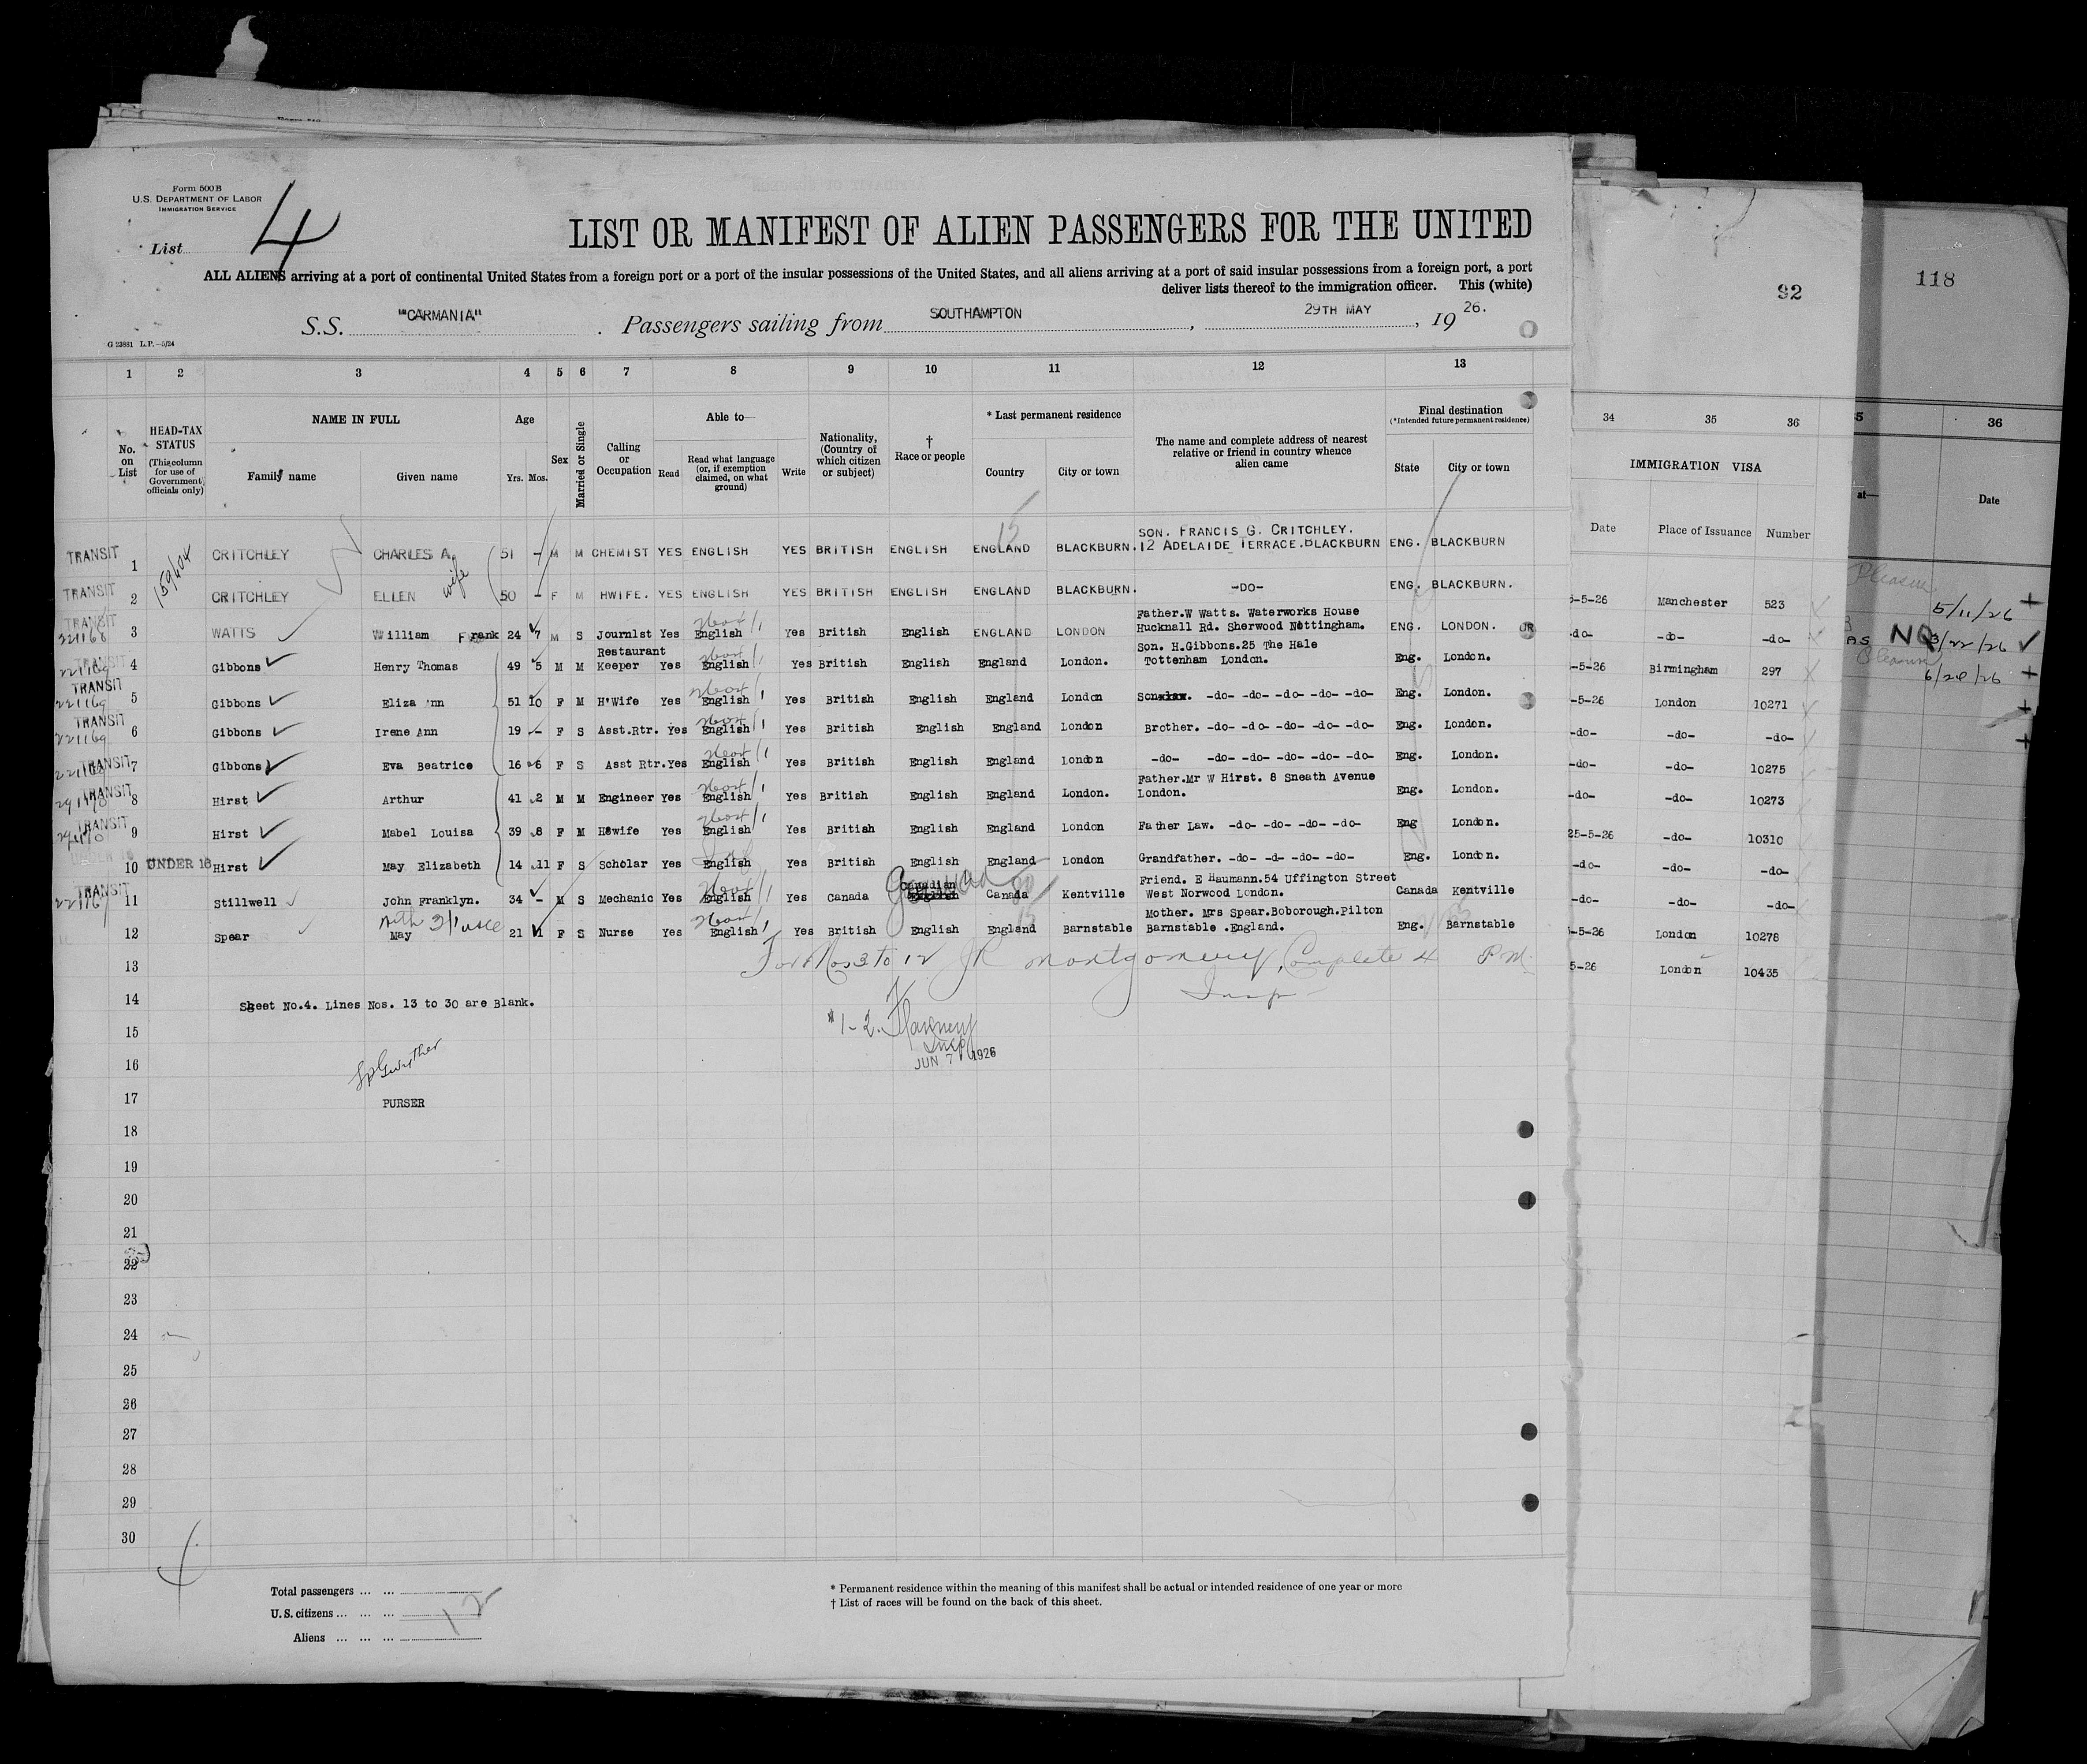 Form 500B
U.S. DEPARTMENT OF LABOR
IMMIGRATION SERVICE
List 4
LIST OR MANIFEST OF ALIEN PASSENGERS FOR THE UNITED
ALL ALIENS arriving at a port of continental United States from a foreign port or a port of the insular possessions of the United States, and all aliens arriving at a port of said insular possessions from a foreign port, a port
deliver lists thereof to the immigration officer. This (white)
S.S. "CARMANIA" . Passengers sailing from SOUTHAMPTON, 29TH MAY, 19 26.
G 23881 L.P.—5/24
92
118
1 2 3 4 5 6 7 8 9 10 11 12 13
34 35 36
36
No. on List
HEAD-TAX STATUS (This column for use of Government officials only)
NAME IN FULL
Family name Given name
Age
Yrs. Mos.
Sex
Married or Single
Calling or Occupation
Able to—
Read
Read what language (or, if exemption claimed, on what ground)
Write
Nationality, (Country of which citizen or subject)
† Race or people
* Last permanent residence
Country City or town
The name and complete address of nearest relative or friend in country whence alien came
Final destination
(*Intended future permanent residence)
State City or town
IMMIGRATION VISA
Date Place of Issuance Number
at— Date
SON. FRANCIS G. CRITCHLEY.
TRANSIT 1 CRITCHLEY CHARLES A. 51 - M M CHEMIST YES ENGLISH YES BRITISH ENGLISH ENGLAND BLACKBURN. 12 ADELAIDE TERRACE.BLACKBURN ENG. BLACKBURN
159604
15
wife
TRANSIT 2 CRITCHLEY ELLEN 50 - F M HWIFE. YES ENGLISH YES BRITISH ENGLISH ENGLAND BLACKBURN. -DO- ENG. BLACKBURN.
Father.W Watts. Waterworks House
TRANSIT 221168 3 WATTS William Frank 24 7 M S Journlst Yes English Yes British English ENGLAND LONDON Hucknall Rd. Sherwood Nottingham. ENG. LONDON.
Restaurant Son. H.Gibbons.25 The Hale
TRANSIT 221169 4 Gibbons Henry Thomas 49 5 M M Keeper Yes English Yes British English England London. Tottenham London. Eng. London.
TRANSIT 221169 5 Gibbons Eliza Ann 51 10 F M H'Wife Yes English Yes British English England London Son -do- -do- -do- -do- -do- Eng. London.
TRANSIT 221169 6 Gibbons Irene Ann 19 - F S Asst.Rtr. Yes English Yes British English England London Brother. -do- -do- -do- -do- -do- Eng. London.
TRANSIT 7 Gibbons Eva Beatrice 16 6 F S Asst Rtr. Yes English Yes British English England London -do- -do- -do- -do- -do- -do- Eng. London.
Father.Mr W Hirst. 8 Sneath Avenue
TRANSIT 8 Hirst Arthur 41 2 M M Engineer Yes English Yes British English England London. London. Eng. London.
TRANSIT 9 Hirst Mabel Louisa 39 8 F M Hswife Yes English Yes British English England London Father Law. -do- -do- -do- -do- Eng London.
10 UNDER 16 Hirst May Elizabeth 14 11 F S Scholar Yes English Yes British English England London Grandfather. -do- -d- -do- -do- Eng. London.
Canadian Friend. E Haumann.54 Uffington Street
TRANSIT 11 Stillwell John Franklyn. 34 - M S Mechanic Yes English Yes Canada English Canada Kentville West Norwood London. Canada Kentville
Mother. Mrs Spear.Boborough.Pilton
12 Spear May 21 11 F S Nurse Yes English Yes British English England Barnstable Barnstable .England. Eng. Barnstable
13 For Nos 3 to 12 JR Montgomery, Complete 4 P.M.
Insp
14 Sheet No.4. Lines Nos. 13 to 30 are Blank.
15 #1-2.
Insp
JUN 7 1926
16
17 PURSER
18
19
20
21
22
23
24
25
26
27
28
29
30
5-5-26 Manchester 523
-do- -do- -do-
-5-26 Birmingham 297
-5-26 London 10271
-do- -do- -do-
-do- -do- 10275
-do- -do- 10273
25-5-26 -do- 10310
-do- -do- -do-
-do- -do- -do-
-5-26 London 10278
5-26 London 10435
Pleasure
5/11/26 +
AS NQ 3/22/26
Pleasure
6/20/26 +
Total passengers ... ...
U.S. citizens ... ... ...
Aliens ... ... ...
12
* Permanent residence within the meaning of this manifest shall be actual or intended residence of one year or more
† List of races will be found on the back of this sheet.